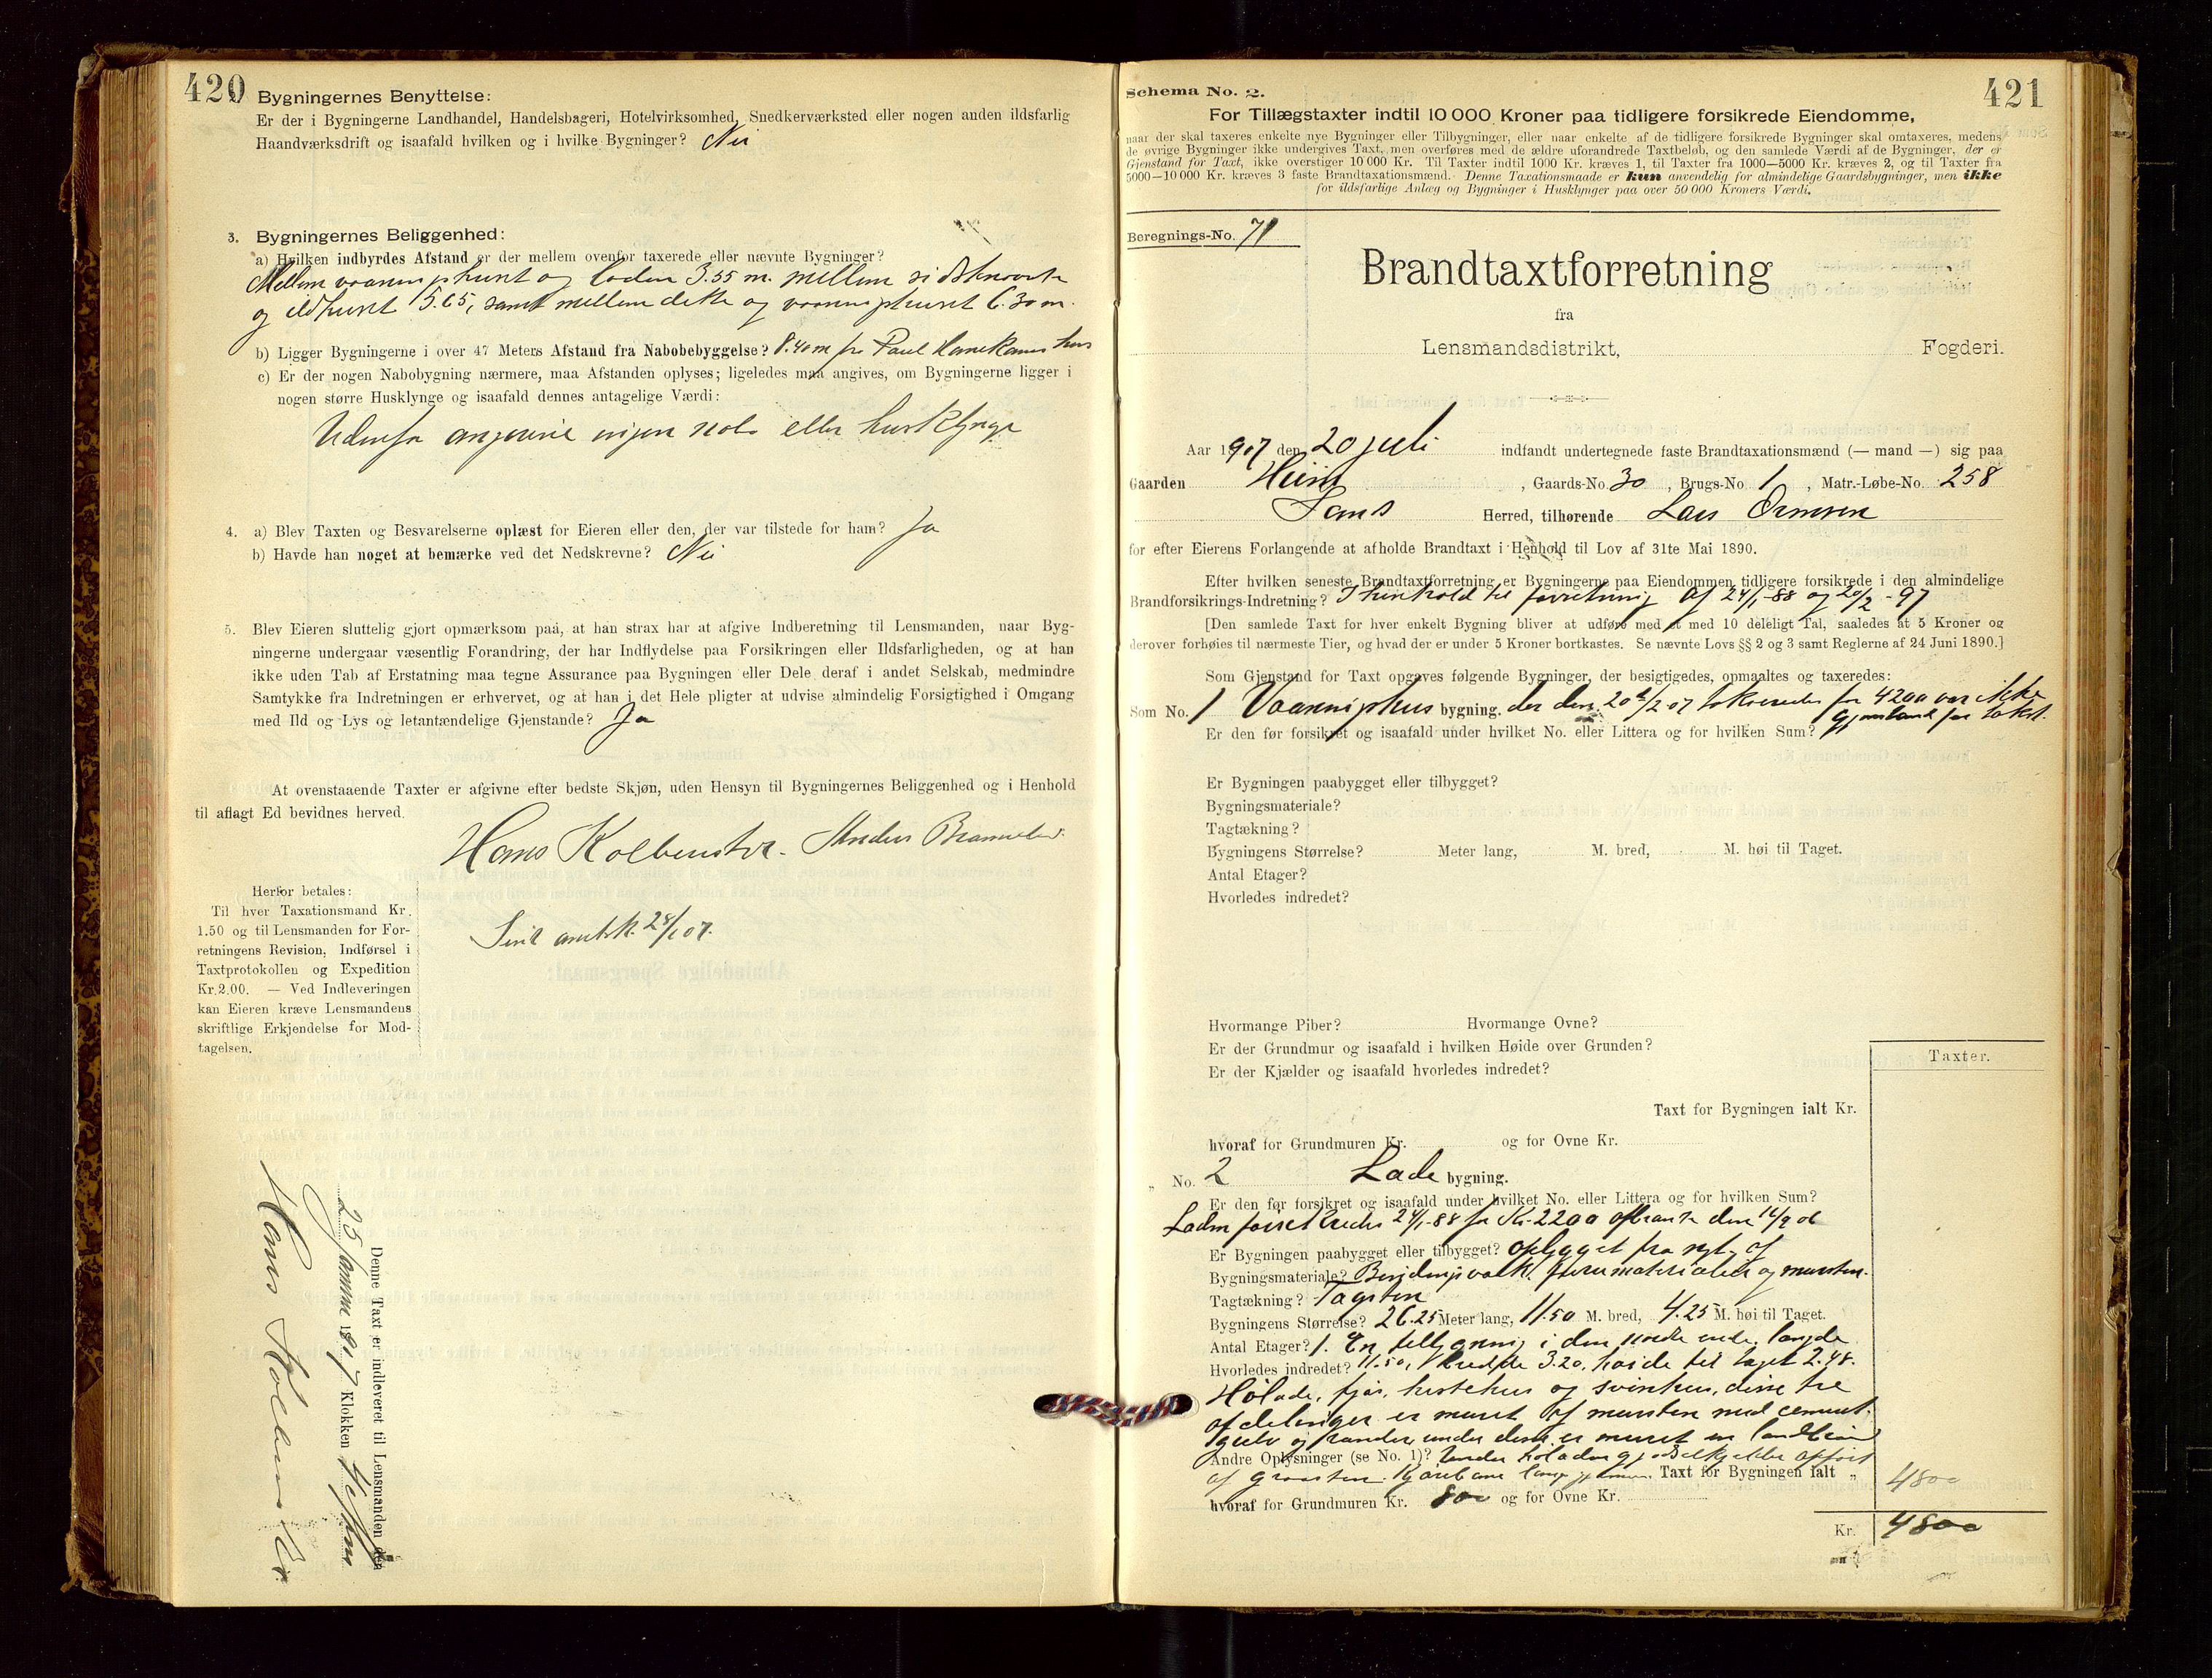 420
Bygningernes Benyttelse:
Er der i Bygningerne Landhandel, Handelsbageri, Hotelvirksomhed, Snedkerværksted eller nogen anden ildsfarlig
Haandværksdrift og isaafald hvilken og i hvilke Bygninger? Nei
3. Bygningernes Beliggenhed:
a) Hvilken indbyrdes Afstand er der mellem ovenfor taxerede eller nævnte Bygninger?
Mellem vaaningshuset og laden 3.55 m. mellem sidstnævnte
og ildhuset 15.65, samt mellem dette og vaaningshuset 6.30 m.
b) Ligger Bygningerne i over 47 Meters Afstand fra Nabobebyggelse? 8.40 m fra Paul hus
c) Er der nogen Nabobygning nærmere, maa Afstanden oplyses; ligeledes maa angives, om Bygningerne ligger i
nogen større Husklynge og isaafald dennes antagelige Værdi:
Udenfor angivne ingen nabo eller husklynge
4. a) Blev Taxten og Besvarelserne oplæst for Eieren eller den, der var tilstede for ham? Ja
b) Havde han noget at bemærke ved det Nedskrevne? Nei
5. Blev Eieren sluttelig gjort opmærksom paa, at han strax har at afgive Indberetning til Lensmanden, naar Byg-
ningerne undergaar væsentlig Forandring, der har Indflydelse paa Forsikringen eller Ildsfarligheden, og at han
ikke uden Tab af Erstatning maa tegne Assurance paa Bygningen eller Dele deraf i andet Selskab, medmindre
Samtykke fra Indretningen er erhvervet, og at han i det Hele pligter at udvise almindelig Forsigtighed i Omgang
med Ild og Lys og letantændelige Gjenstande? Ja
At ovenstaaende Taxter er afgivne efter bedste Skjøn, uden Hensyn til Bygningernes Beliggenhed og i Henhold
til aflagt Ed bevidnes herved.
Hans Kolbenstvedt. Anders
Herfor betales:
Til hver Taxationsmand Kr.
1.50 og til Lensmanden for For-
retningens Revision, Indførsel i
Taxtprotokollen og Expedition
Kr. 2.00. — Ved Indleveringen
kan Eieren kræve Lensmandens
skriftlige Erkjendelse for Mod-
tagelsen.
28/1 07.
Denne Taxt er indleveret til Lensmanden den
25 1907 Klokken 4
Hans
Schema No. 2.
421
For Tillægstaxter indtil 10 000 Kroner paa tidligere forsikrede Eiendomme,
naar der skal taxeres enkelte nye Bygninger eller Tilbygninger, eller naar enkelte af de tidligere forsikrede Bygninger skal omtaxeres, medens
de øvrige Bygninger ikke undergives Taxt, men overføres med de ældre uforandrede Taxtbeløb, og den samlede Værdi af de Bygninger, der er
Gjenstand for Taxt, ikke overstiger 10 000 Kr. Til Taxter indtil 1000 Kr. kræves 1, til Taxter fra 1000—5000 Kr. kræves 2, og til Taxter fra
5000—10 000 Kr. kræves 3 faste Brandtaxationsmænd. Denne Taxationsmaade er kun anvendelig for almindelige Gaardsbygninger, men ikke
for ildsfarlige Anlæg og Bygninger i Husklynger paa over 50 000 Kroners Værdi.
Beregnings-No. 71
Brandtaxtforretning
fra
Lensmandsdistrikt, Fogderi.
Aar 1907 den 20 juli indfandt undertegnede faste Brandtaxationsmænd (— mand —) sig paa
Gaarden , Gaards-No. 30 , Brugs-No 1 , Matr.-Løbe-No. 258
Herred, tilhørende Lars Ormsen
for efter Eierens Forlangende at afholde Brandtaxt i Henhold til Lov af 31te Mai 1890.
Efter hvilken seneste Brandtaxtforretning er Bygningerne paa Eiendommen tidligere forsikrede i den almindelige
Brandforsikrings-Indretning? I henhold til forretning af 24/1-88 og 20/2-97
[Den samlede Taxt for hver enkelt Bygning bliver at udføre med et med 10 deleligt Tal, saaledes at 5 Kroner og
derover forhøies til nærmeste Tier, og hvad der er under 5 Kroner bortkastes. Se nævnte Lovs §§ 2 og 3 samt Reglerne af 24 Juni 1890.]
Som Gjenstand for Taxt opgaves følgende Bygninger, der besigtigedes, opmaaltes og taxeredes:
Som No. 1 Vaaningshus bygning. der den for 4200 var ikke
gjenstand for takst.
Er den før forsikret og isaafald under hvilket No. eller Littera og for hvilken Sum?
Er Bygningen paabygget eller tilbygget?
Bygningsmateriale?
Tagtækning?
Bygningens Størrelse? Meter lang, M. bred, M. høi til Taget.
Antal Etager?
Hvorledes indredet?
Hvormange Piber? Hvormange Ovne?
Er der Grundmur og isaafald i hvilken Høide over Grunden?
Er der Kjælder og isaafald hvorledes indredet?
Taxter.
Taxt for Bygningen ialt Kr.
hvoraf for Grundmuren Kr. og for Ovne Kr.
„ No. 2 Lade bygning.
Er den før forsikret og isaafald under hvilket No. eller Littera og for hvilken Sum?
Laden 24/1-88 for Kr. 2200 afbrændte den
Er Bygningen paabygget eller tilbygget? opbygget fra nyt af
Bygningsmateriale? Bindingsværk. furumaterialer og mursten.
Tagtækning? Tagsten
Bygningens Størrelse? 26.25 Meter lang, 11.50 M. bred, 4.25 M. høi til Taget.
Antal Etager? 1. En tilbygning i den nordre ende, længde
Hvorledes indredet? 11.50, bredde 3.20, høide til taget 2.48.
Hølade, fjøs, hestehus og svinehus, disse tre
afdelinger er muret af mursten med cement.
gulv og under er muret en
Andre Oplysninger (se No. 1)? Under høladen
af graasten. Kjørebane Taxt for Bygningen ialt „ 4800
hvoraf for Grundmuren Kr. 800 og for Ovne Kr.
Kr. 4800